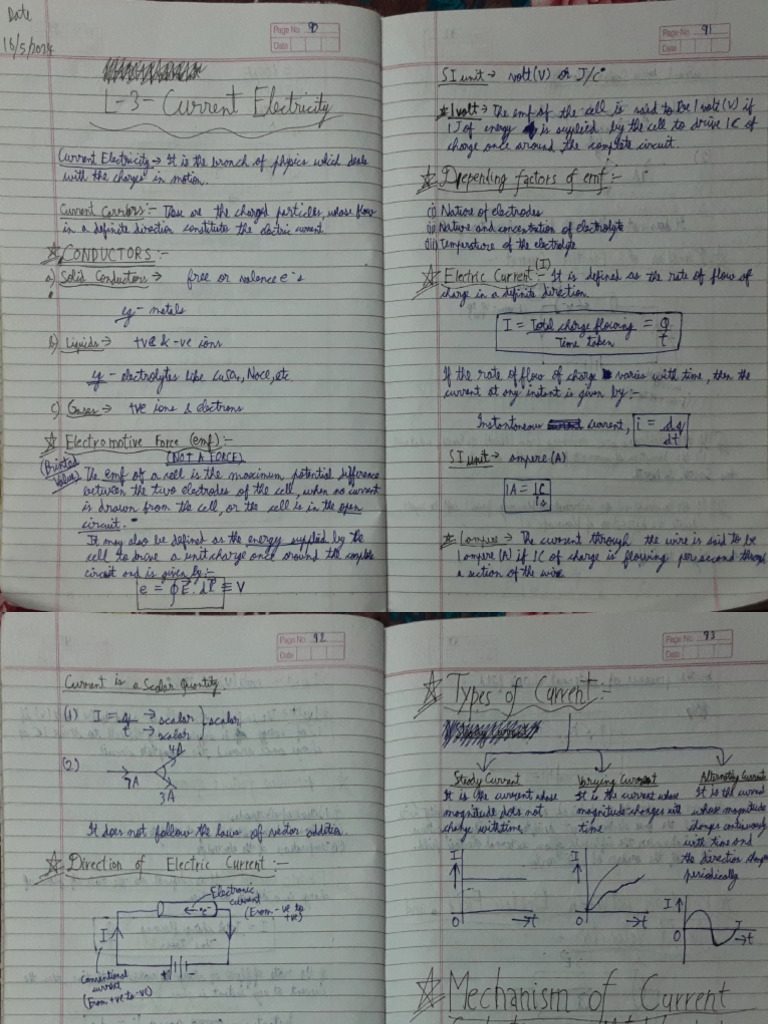 Date
16/5/2024
Page No. 90
Date
L-3- Current Electricity
Current Electricity → It is the branch of physics which deals
with the charges in motion.
Current Carriers:- These are the charged particles, whose flow
in a definite direction constitutes the electric current.
CONDUCTORS:-
a) Solid Conductors → free or valence e-s
eg - metals
b) Liquids → +ve & -ve ions
eg - electrolytes like CuSO4, NaCl, etc
c) Gases → +ve ions & electrons
Electromotive Force (emf):-
(NOT A FORCE)
(Printed
Value)
The emf of a cell is the maximum potential difference
between the two electrodes of the cell, when no current
is drawn from the cell, or the cell is in the open
circuit.
It may also be defined as the energy supplied by the
cell to drive a unit charge once around the complete
circuit and is given by:-
e = ∮E⃗.dl⃗ ≡ V
Page No. 91
Date
SI unit → volt (V) or J/C
1 volt → The emf of the cell is said to be 1 volt (V) if
1J of energy is supplied by the cell to drive 1C of
charge once around the complete circuit.
Depending factors of emf:-
(i) Nature of electrodes
(ii) Nature and concentration of electrolyte
(iii) Temperature of the electrolyte
Electric Current (I):- It is defined as the rate of flow of
charge in a definite direction.
I = Total charge flowing / Time taken = Q / t
If the rate of flow of charge varies with time, then the
current at any instant is given by:-
Instantaneous current, i = dq / dt
SI unit → ampere (A)
1A = 1C / 1s
1 ampere → The current through the wire is said to be
1 ampere (A) if 1C of charge is flowing per second through
a section of the wire.
Page No. 92
Date
Current is a Scalar Quantity.
(1) I = q → scalar } scalar
t → scalar
(2)
4A
7A
3A
It does not follow the laws of vector addition
Direction of Electric Current:-
Electronic
current
(From -ve to
+ve)
← e-
I
+
-
Conventional
current
(From +ve to -ve)
Page No. 93
Date
Types of Current:-
Steady Current
It is the current whose
magnitude does not
change with time
I
O
→t
Varying Current
It is the current whose
magnitude changes with
time
I
O
→t
Alternating Current
It is the current
whose magnitude
changes continuously
with time and
the direction changes
periodically
I
O
→t
Mechanism of Current